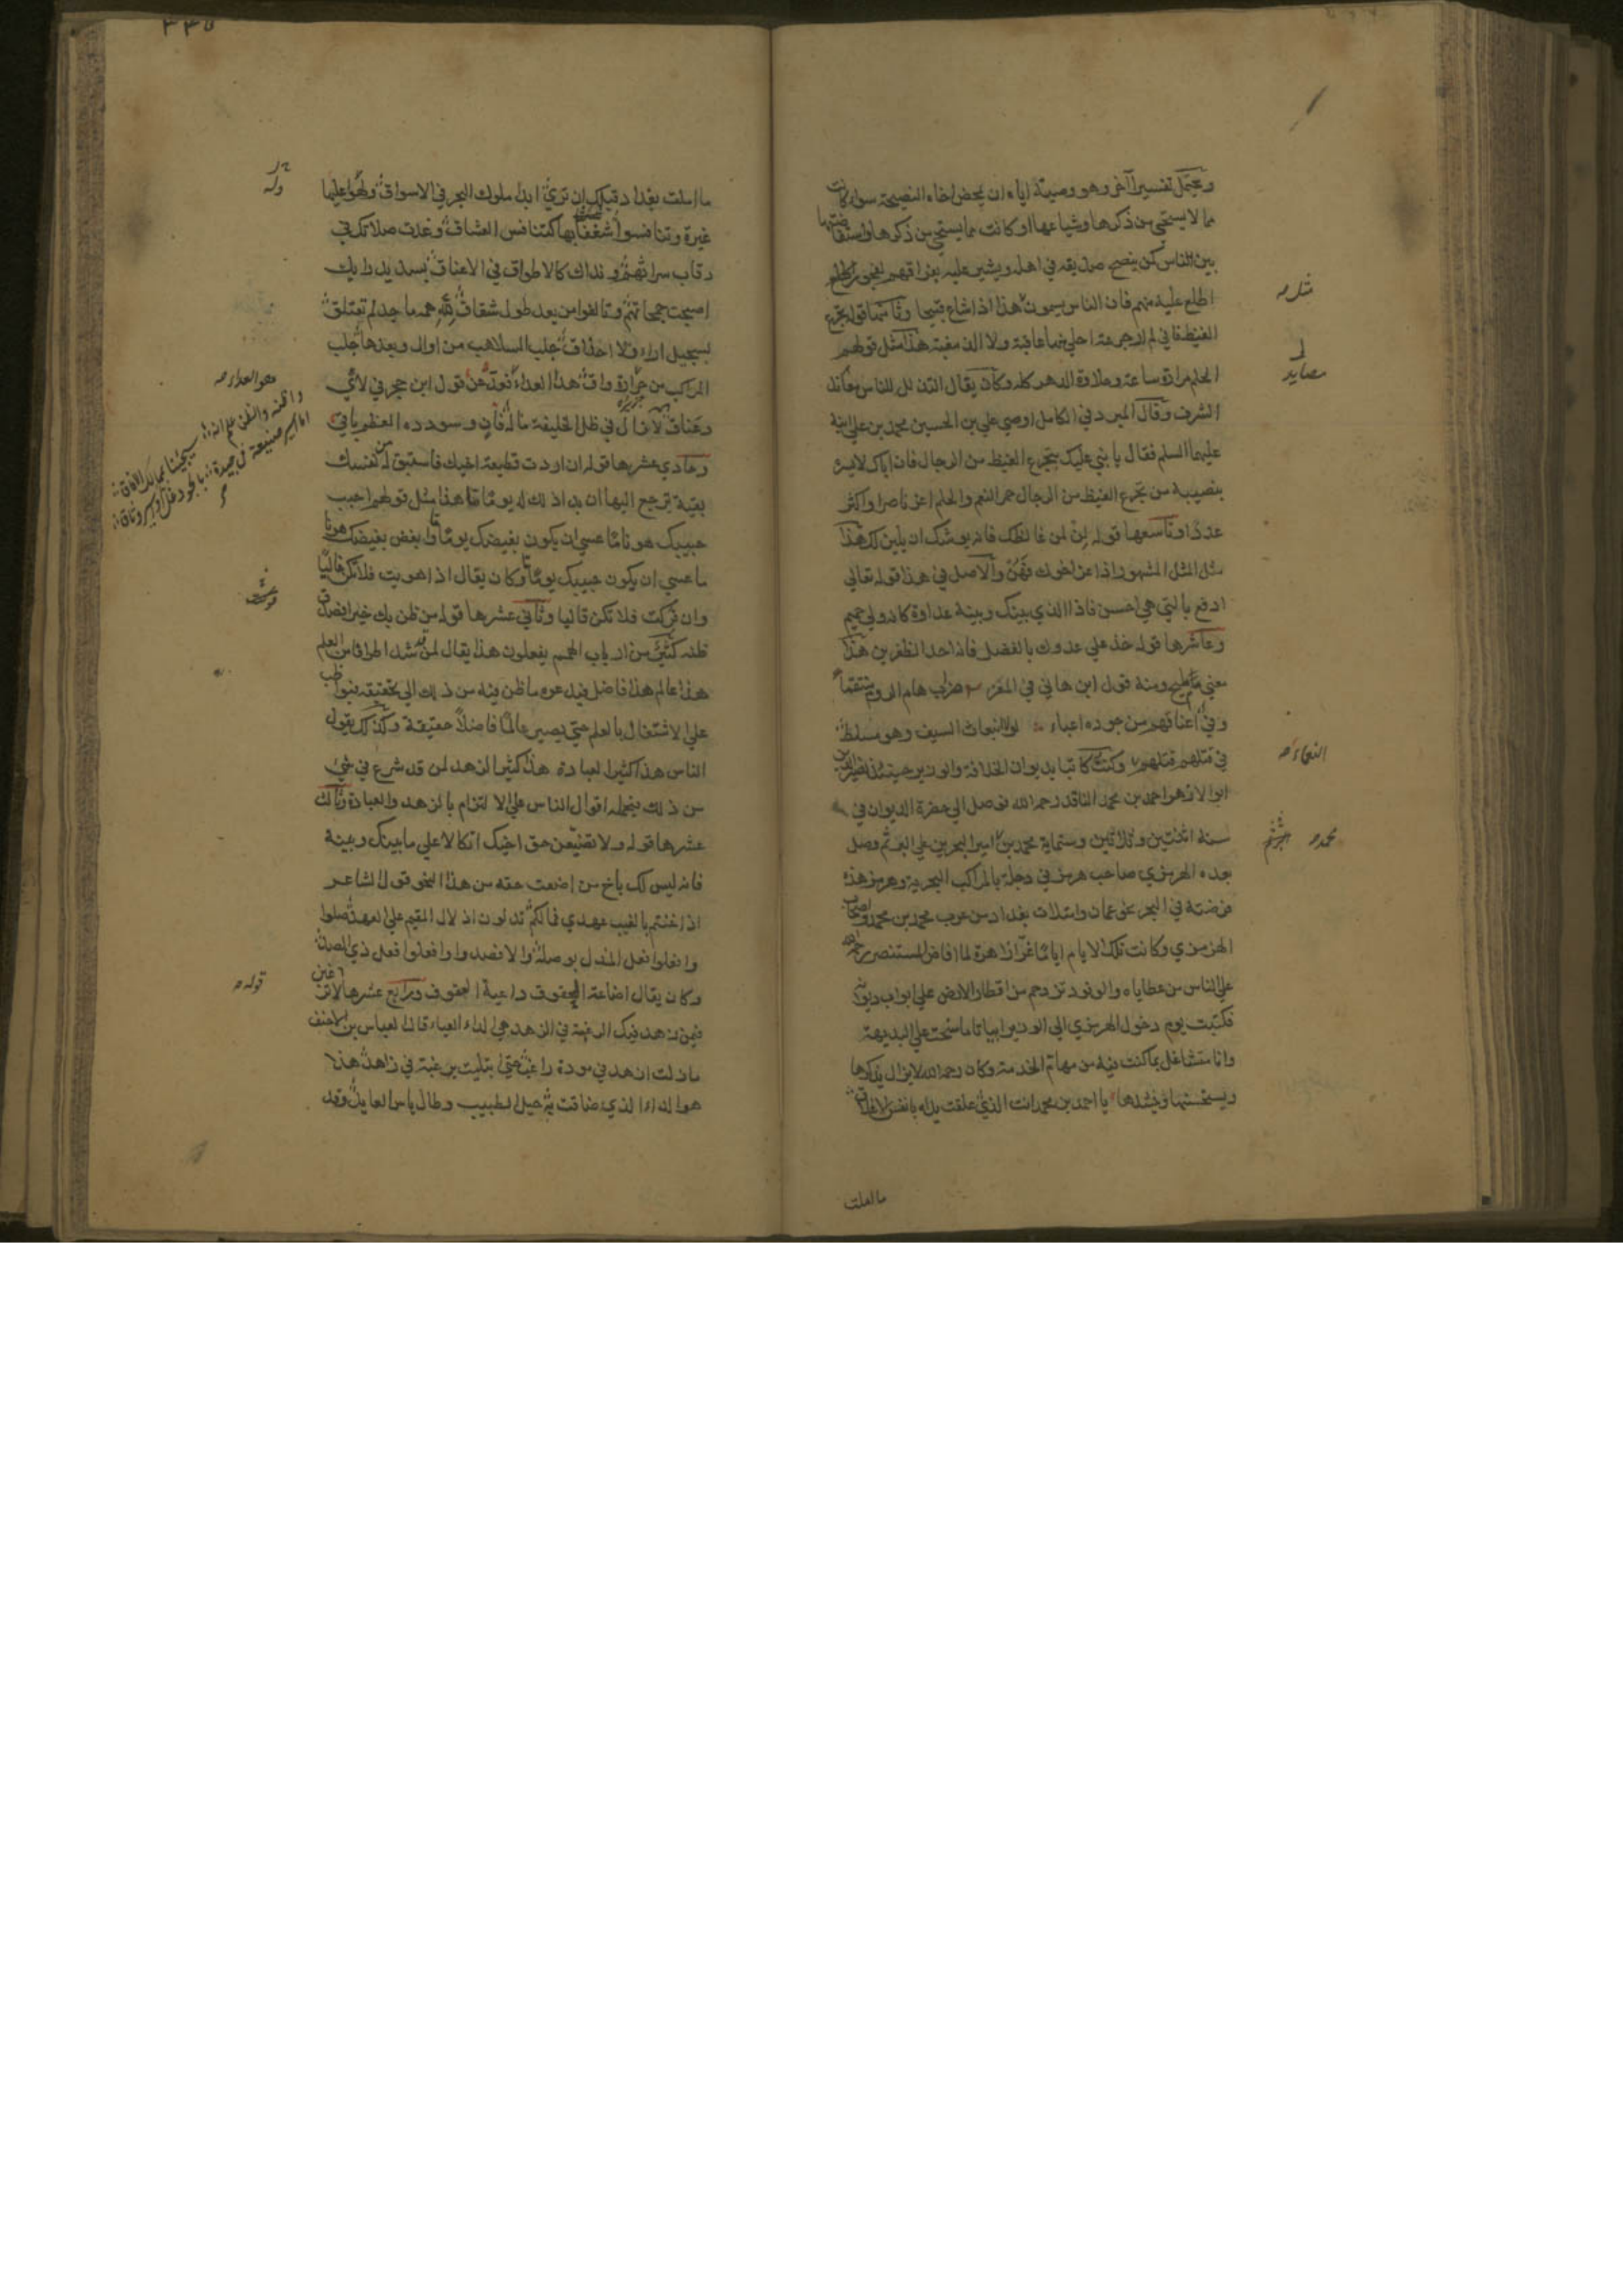 ويحتمل تفسيرا آخر وهو وصيته اياه ان يمحض اخاه النصيحة سواء كانت
مما لا يستحيى من ذكرها وشياعها او كانت مما يستحيى من ذكرها واستفاضتها
بين الناس كمن ينصح صديقه في اهله ويشير عليه بفراقهم لفجور
اطلع عليه منهم فان الناس يسمون هذا اذا شاع قبيحا وثامنها قوله تجرع
الغيظ فاني لم ار جرعة احلى منها عاقبة ولا الذ مغبة هذا مثل قولهم
الحلم مرارة ساعة وحلاوة الدهر كله وكان يقال التذلل للناس
الشرف وقال المبرد في الكامل اوصى علي بن الحسين محمد بن علي ابنه
عليهما السلم فقال يا بني عليك بتجرع الغيظ من الرجال فان اباك لا يسره
بنصيبه من تجرع الغيظ من الرجال حمر النعم والحلم اعز ناصرا واكثر
عددا وتاسعها قوله لن لمن غالظك فانه يوشك ان يلين لك هذا
مثل المثل المشهور اذا عز اخوك فهن والاصل في هذا قوله تعالى
ادفع بالتي هي احسن فاذا الذي بينك وبينه عداوة كانه ولي حميم
وعاشرها قوله خذ على عدوك بالفضل فانه احد الظفرين هذا
معنى مليح ومنه قول ابن هاني في المعز ضراب هام الروم منتقما
وفي اعناقهم من جوده اعباء لولا انبعاث السيف وهو مسلط
في قتلهم قتلهم وكنت كاتبا بديوان الخلافة والوزير حينئذ نصير الدين
ابو الازهر احمد بن محمد الناقد رحمه الله فوصل الى حضرة الديوان في
سنة اثنتين وثلاثين وستماية محمد بن امير البحرين على البر ثم وصل
بعده الهرمزي صاحب هرمز في دجلة بالمراكب البحرية وهرمز هذه
فرضة في البحر نحو عمان وامتلات بغداد من عرب محمد بن محمد واصحاب
الهرمزي وكانت تلك الايام اياما غرا زاهرة لما افاض المستنصر رحمه الله
على الناس من عطاياه والوفود تزدحم من اقطار الارض على ابواب ديوانه
فكتبت يوم دخول الهرمزي الى الوزير ابياتا ما سنحت على البديهة
وانا متشاغل بما كنت فيه من مهام الخدمة وكان رحمه الله لا يزال يذكرها
ويستحسنها وينشدها يا احمد بن محمد انت الذي علقت يداه بانفس الاعلاق
ما املت
النعماء
محمد
٣٣٥
ما املت بغداد قبلك ان ترى ابدا ملوك البحر في الاسواق ولهوا عليها
غيرة وتنافسوا شغفا بها كتنافس العشاق وغدت صلاتك في
رقاب سراتهم ونداك كالاطواق في الاعناق بسديد رايك
اصبحت جمحاتهم وتالفوا من بعد طول شقاق لله همة ماجد لم تعتلق
بسحيل اراء ولا احذاق جلب السلاهب من اوال وبعدها جلب
المراكب من جزيرة واق هذا العداء فعد عن قول ابن حجر في لاي
وعناق لا زال في ظل الخليفة ماله فان وسودده العظيم باقي
وحادي عشرها قوله ان اردت قطيعة اخيك فاستبق له من نفسك
بقية ترجع اليها ان بدا ذلك له يوما ما هذا مثل قولهم احبب
حبيبك هونا ما عسى ان يكون بغيضك يوما ما وابغض بغيضك هونا
ما عسى ان يكون حبيبك يوما ما وكان يقال اذا هويت فلا تكن غاليا
وان تركت فلا تكن قاليا وثاني عشرها قوله من ظن بك خيرا فصدق
ظنه كثير من ارباب الهمم يفعلون هذا يقال لمن شدا طرفا من العلم
هذا عالم هذا فاضل فيدعوه ما ظن فيه من ذلك الى تحقيقه فيواظب
على الاشتغال بالعلم حتى يصير عالما فاضلا حقيقة وكذلك يقول
الناس هذا كثير العبادة هذا كثير الزهد لمن قد شرع في شئ
من ذلك فيحمله اقوال الناس على الالتزام بالزهد والعبادة وثالث
عشرها قوله ولا تضيعن حق اخيك اتكالا على ما بينك وبينه
فانه ليس لك باخ من اضعت حقه من هذا النحو قول الشاعر
اذا خنتم بالغيب عهدي فما لكم تدلون ادلال المقيم على العهد صلوا
وافعلوا فعل المدل بوصله والا فصدوا وافعلوا فعل ذي الصد
وكان يقال اضاعة الحقوق داعية العقوق ورابع عشرها لا ترغبن
فيمن زهد فيك الرغبة في الزاهد هي الداء العياء قال العباس بن الاحنف
ما زلت ازهد في مودة راغب حتى ابتليت برغبة في زاهد هذا
هو الداء الذي ضاقت به حيل الطبيب وطال ياس العايد وقد
هو العداء
قوله